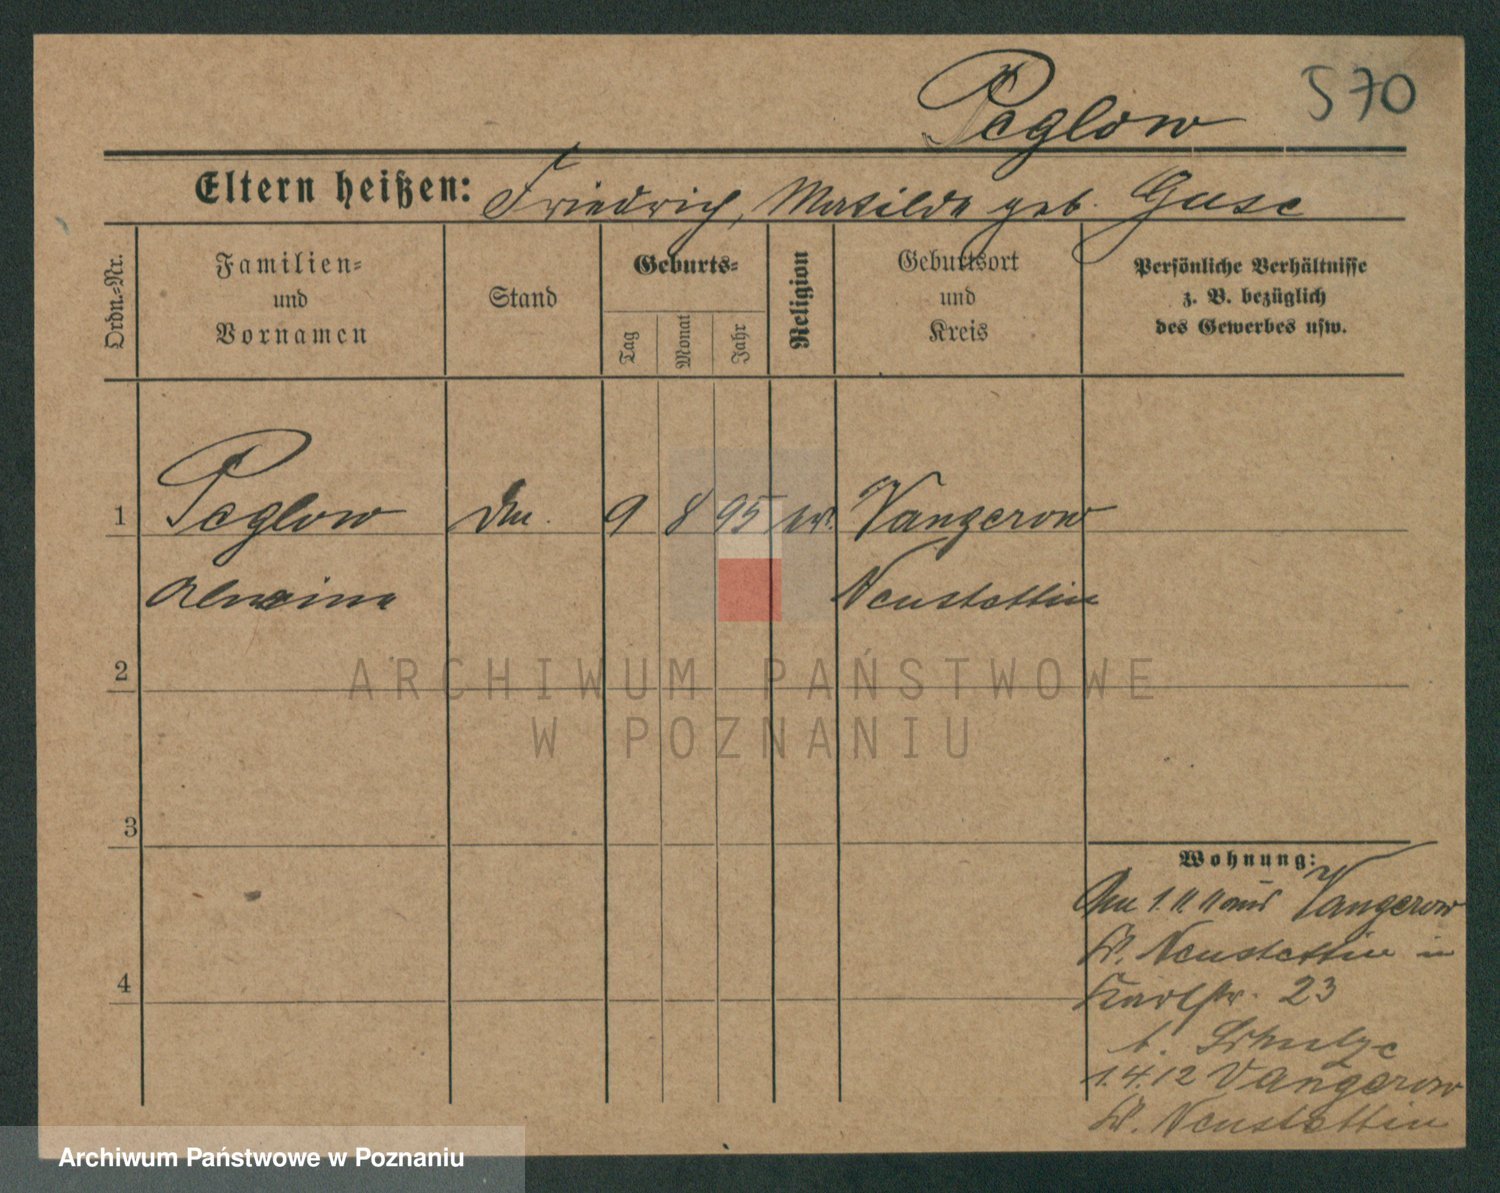 Peglow 570
Eltern heißen: Friedrich, Matilde geb. Guse
Ordn.-Nr.
Familien-
und
Vornamen
Stand
Geburts-
Tag
Monat
Jahr
Religion
Geburtsort
und
Kreis
Persönliche Verhältnisse
z. B. bezüglich
des Gewerbes usw.
1 Peglow 9 8 95 ev. Vangerow
Neustettin
2
ARCHIWUM PAŃSTWOWE
W POZNANIU
3
4
Wohnung:
1. 11. 11 aus Vangerow
Kr. Neustettin in
Karlstr. 23
b. Schulze
1.4.12 Vangerow
Kr. Neustettin
Archiwum Państwowe w Poznaniu